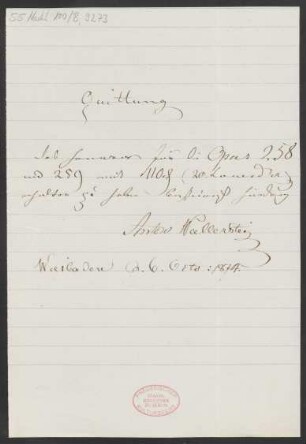 55 Nachl. 100/B, 9273
Quittung
das Honorar für die Opus 258
und 259 mit
erhalten zu haben bescheinigt hiermit
Anton Wallerstein
Wiesbaden d. 6. Octb. 1874.